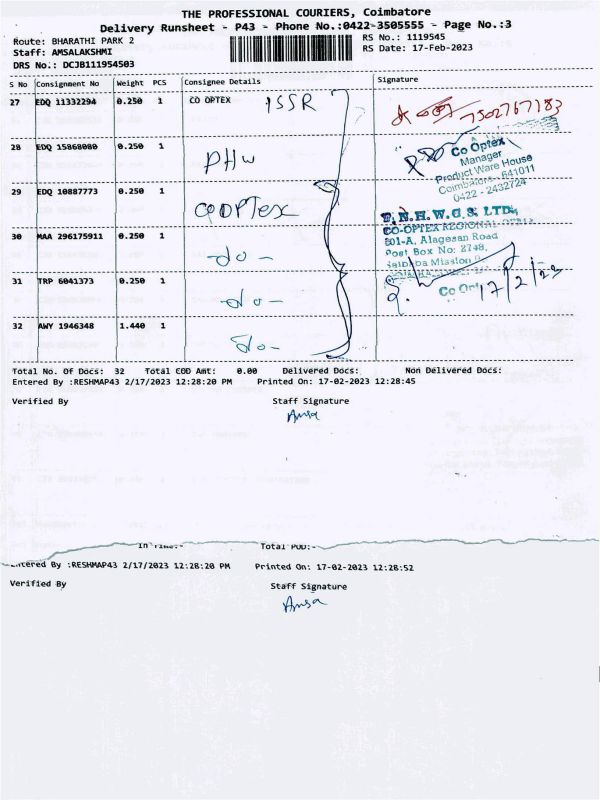 THE PROFESSIONAL COURIERS, Coimbatore
Delivery Runsheet - P43 - Phone No.:0422-3505555 - Page No.:3
Route: BHARATHI PARK 2
RS No.: 1119545
Staff: AMSALAKSHMI
RS Date: 17-Feb-2023
DRS No.: DCJB111954503
S No Consignment No Weight PCS Consignee Details Signature
27 EDQ 11332294 0.250 1 CO OPTEX ISSR
7502767183
28 EDQ 15868080 0.250 1 PHW
Co Optex
Manager
Product Ware House
Coimbatore - 641011
0422 - 2432724
29 EDQ 10887773 0.250 1 COOPTEX
CO-OPTEX REGIONAL
201-A, Alagesan Road
Post Box No: 2748,
30 MAA 296175911 0.250 1 -do-
31 TRP 6041373 0.250 1 -do-
17/2/23
32 AWY 1946348 1.440 1 -do-
Total No. Of Docs: 32 Total COD Amt: 0.00 Delivered Docs: Non Delivered Docs:
Entered By :RESHMAP43 2/17/2023 12:28:20 PM Printed On: 17-02-2023 12:28:45
Verified By Staff Signature
Amsa
In Time:- Total POD:-
Entered By :RESHMAP43 2/17/2023 12:28:20 PM Printed On: 17-02-2023 12:28:52
Verified By Staff Signature
Amsa